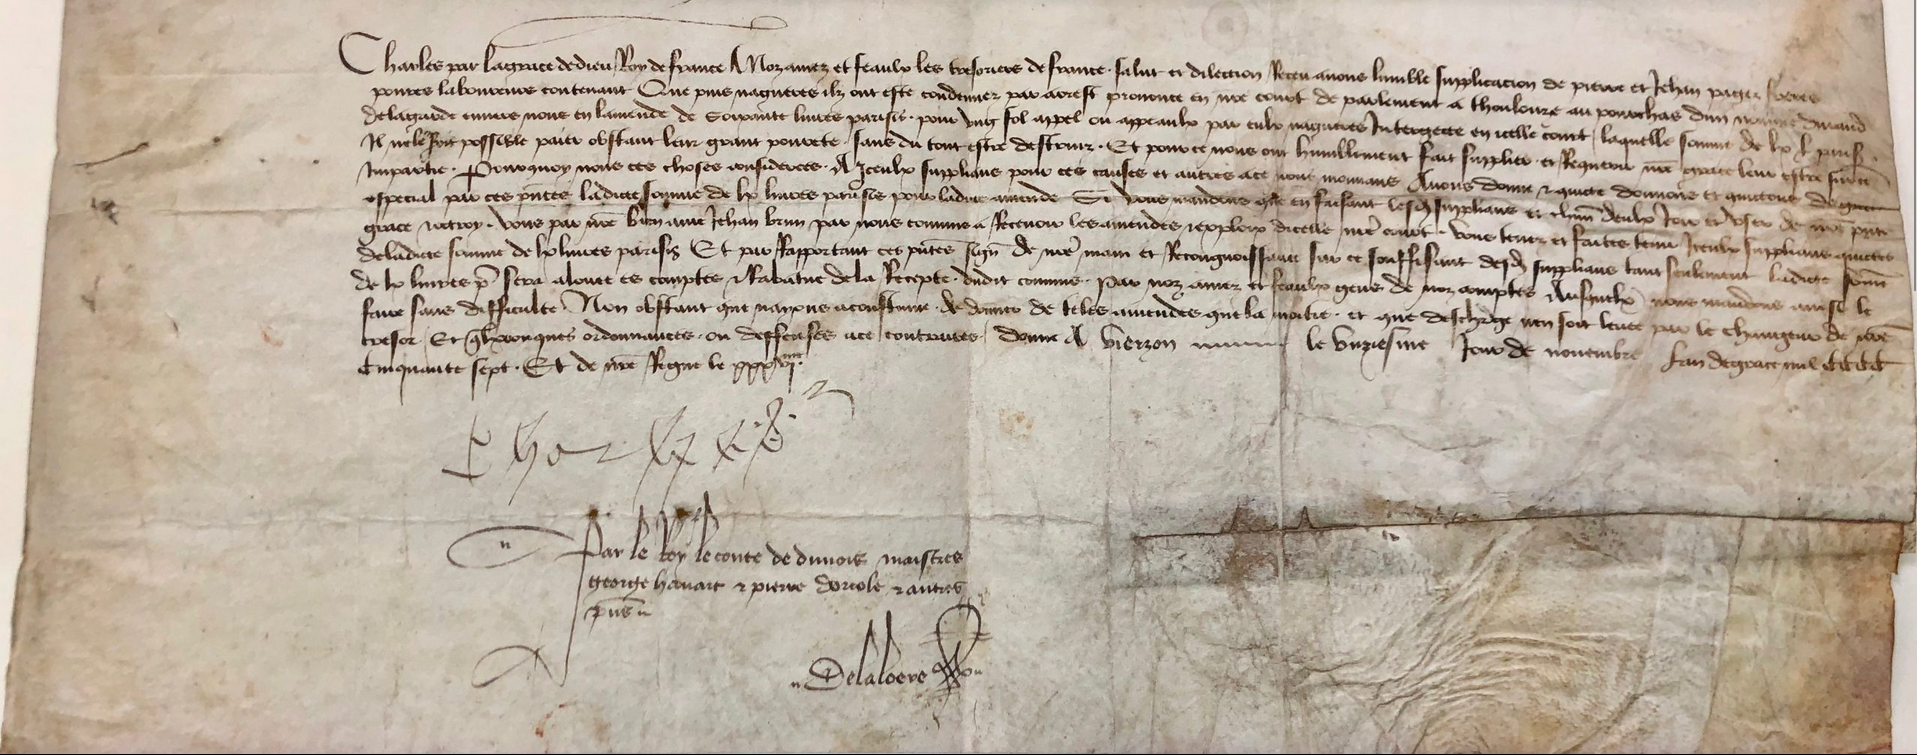 Charles par la grace de dieu Roy de france A Noz amez et feaulx les tresoriers de france. salut et dilection Receu avons humble supplicacion de pierre et Jehan pagez freres
povres laboureurs contenant Que puis nagueres ilz ont este condennez par arrest prononce en nre court de parlement a Thoulouze au pourchas dun nomme durand
delagarde envers nous en lamende de soixante livres parisis. pour ung fol appel ou appeaulx par eulx nagueres Intergecte en icelle court laquelle somme de lx l. paris.
Il possible paier obstant leur grant povrete. sans du tout estre destruiz. Et pour ce nous ont humblement fait supplier et Requerir nre grace leur estre sur ce
Impartie. Pourquoy nous ces choses considerees. A Iceulx supplians pour ces causes et autres a ce nous mouvans Avons donne et quicte donnons et quictons de grace
especial par ces pntes ladicte somme de lx livres parisis pour ladicte amende Si vous mandons que en faisant lesd supplians et chun deulx Joir et user de nre pnte
grace et octroy. vous par nre bien ame Jehan brun par nous commis a Recevoir les amendes et exploiz dicelle nre court. vous tenez et faictes tenir Iceulx supplians quictes
de ladicte somme de lx livres parisis Et par Rapportant ces pntes sign de nre main et Recongnoissance sur ce souffisant desd supplians tant seulement ladicte somme
de lx livres p sera alouee es comptes et Rabatue de la Recepte. dudit commis. Par noz amez et feaulx gens de noz comptes Ausquelx nous mandons ainsi le
faire sans difficulte. Non obstant que nayons acoustume. de donner de teles amendes que la moitie. et que descharge nen soit levee par le changeur de nre
tresor. Et quelxconques ordonnances. ou deffenses a ce contraires. donne A vierzon le unziesme Jour de novembre Lan de grace mil cccc
cinquante sept. Et de nre Regne le xxxvi.me
Charles
Par le Roy le conte de dunois maistres
george havart et pierre doriole et autres
pns
Delaloere